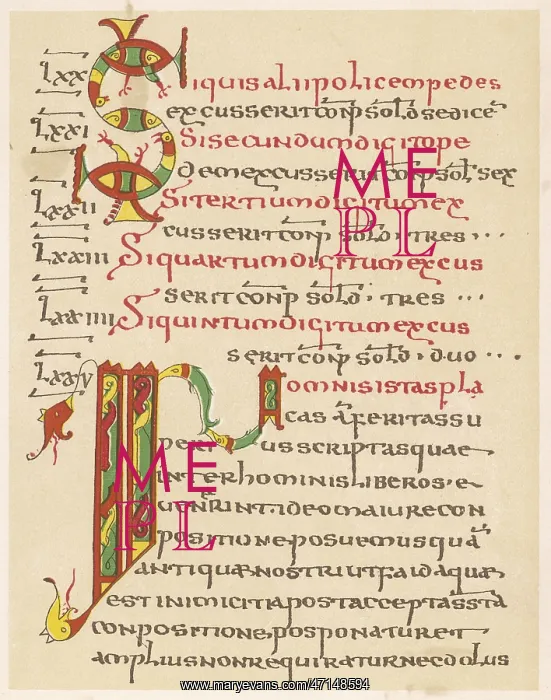 Lxx Siquis aliipolicempedes
excusserit conp solđ sedice
Lxxi Sisecundumdigitope
demexcusserit conp sol sex
Lxxii Sitertiumdigitumex
cusserit conp solđ · tres · · ·
Lxxiii Siquartumdigitumexcus
serit conp solđ · tres · · ·
Lxxiiii Siquintumdigitumexcus
serit conp solđ · duo · · ·
Lxxv In omnisistaspla
cas feritassu
periusscriptasquae
interhominisliberose
uenerint · ideomaiurecon
positioneposuemusqua
antiquaenostri
estinimicitiapostacceptassta
conpositioneposponaturet
ampliusnonrequiraturnecdolus
ME
PL
ME
PL
www.maryevans.com/47148594